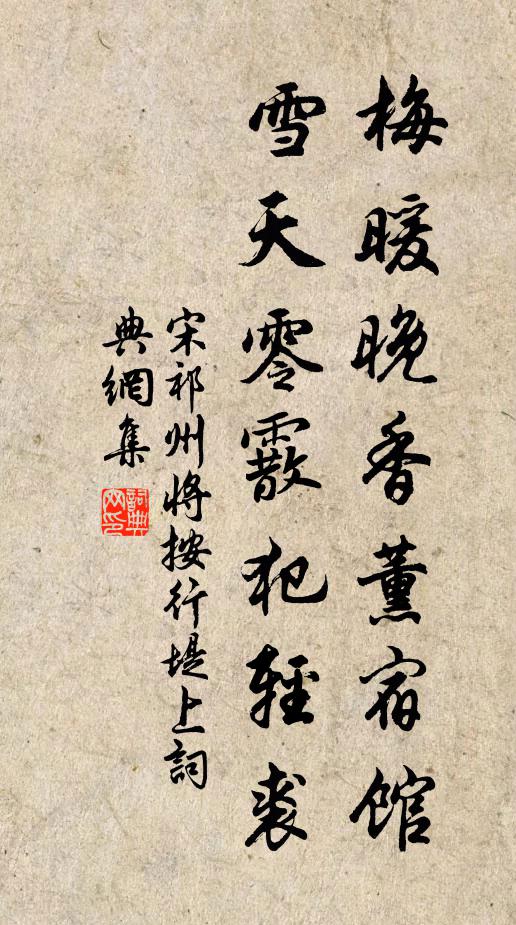 梅暖晚香薰宿館
雪天零霰犯輕裘
宋祁州將按行堤上詞
典網集
詞典网印